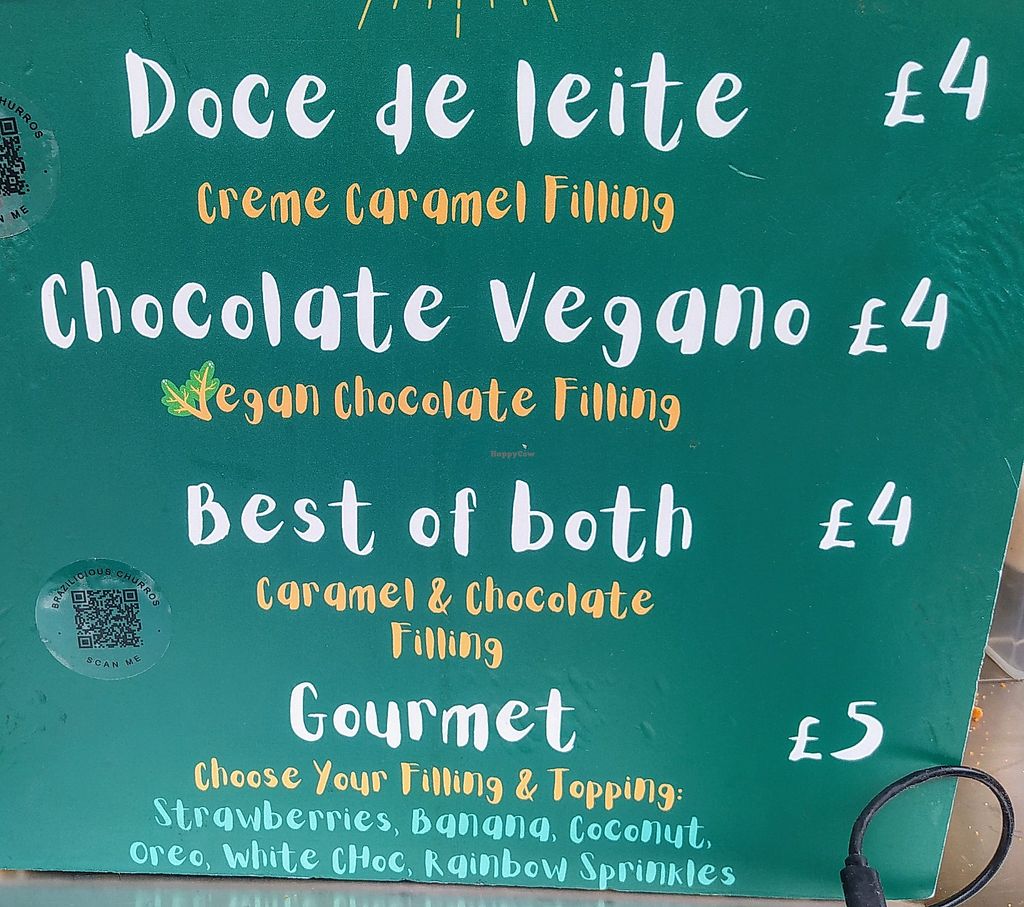 Doce de leite £4
Creme Caramel Filling
Chocolate Vegano £4
Vegan Chocolate Filling
HappyCow
Best of both £4
Caramel & Chocolate
Filling
BRAZILICIOUS CHURROS
SCAN ME
Gourmet £5
Choose Your Filling & Topping:
Strawberries, Banana, Coconut,
Oreo, White CHoc, Rainbow Sprinkles